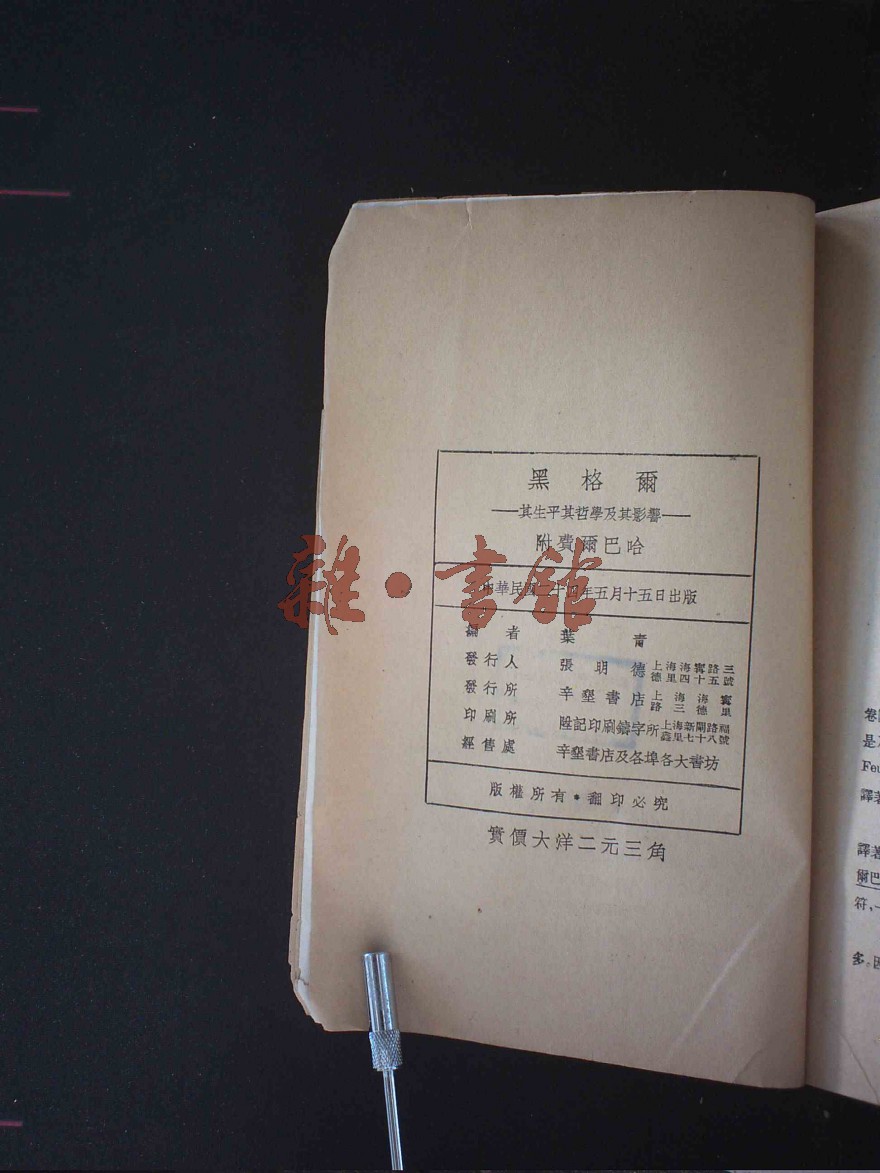 黑格爾
——其生平其哲學及其影響——
附費爾巴哈
中華民國二十四年五月十五日出版
編者 葉青
發行人 張明德 上海海甯路三德里四十五號
發行所 辛墾書店 上海海甯路三德里
印刷所 陞記印刷鑄字所 上海新閘路福鑫里七十八號
經售處 辛墾書店及各埠各大書坊
版權所有•翻印必究
實價大洋二元三角
雜·書館
卷
是
Feu
譯著
譯著
爾巴
符,一
多。因